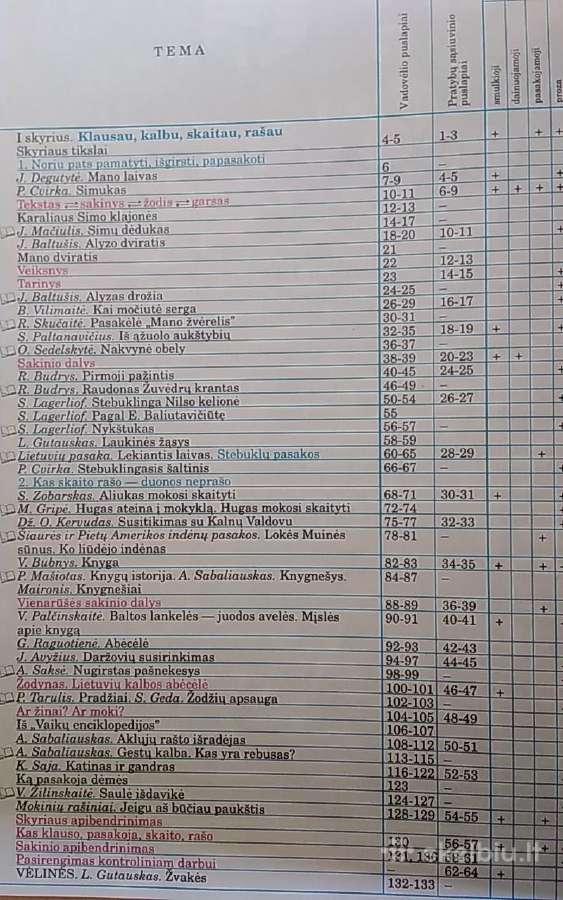 TEMA
Vadovėlio puslapiai
Pratybų sąsiuvinio puslapiai
smulkioji
dainuojamoji
pasakojamoji
proza
I skyrius. Klausau, kalbu, skaitau, rašau 4-5 1-3 + + +
Skyriaus tikslai
1. Noriu pats pamatyti, išgirsti, papasakoti 6 –
J. Degutytė. Mano laivas 7-9 4-5 + +
P. Cvirka. Simukas 10-11 6-9 + + + +
Tekstas ⇌ sakinys ⇌ žodis ⇌ garsas 12-13 –
Karaliaus Simo klajonės 14-17 –
J. Mačiulis. Simų dėdukas 18-20 10-11 +
J. Baltušis. Alyzo dviratis 21 –
Mano dviratis 22 12-13
Veiksnys 23 14-15
Tarinys 24-25 –
J. Baltušis. Alyzas drožia 26-29 16-17
B. Vilimaitė. Kai močiutė serga 30-31 –
R. Skučaitė. Pasakėlė „Mano žvėrelis” 32-35 18-19 +
S. Paltanavičius. Iš ąžuolo aukštybių 36-37 –
O. Sedelskytė. Nakvynė obely 38-39 20-23 + +
Sakinio dalys 40-45 24-25
R. Budrys. Pirmoji pažintis 46-49 –
R. Budrys. Raudonas Žuvėdrų krantas 50-54 26-27
S. Lagerliof. Stebuklinga Nilso kelionė 55
S. Lagerliof. Pagal E. Baliutavičiūtę 56-57 –
S. Lagerliof. Nykštukas 58-59
L. Gutauskas. Laukinės žąsys 60-65 28-29 +
Lietuvių pasaka. Lekiantis laivas. Stebuklų pasakos 66-67 –
P. Cvirka. Stebuklingasis šaltinis
2. Kas skaito rašo — duonos neprašo 68-71 30-31 +
S. Zobarskas. Aliukas mokosi skaityti 72-74
M. Gripė. Hugas ateina į mokyklą. Hugas mokosi skaityti 75-77 32-33
Dž. O. Kervudas. Susitikimas su Kalnų Valdovu 78-81 – +
Šiaurės ir Pietų Amerikos indėnų pasakos. Lokės Muinės
sūnus. Ko liūdėjo indėnas
V. Bubnys. Knyga 82-83 34-35 + +
P. Mašiotas. Knygų istorija. A. Sabaliauskas. Knygnešys. 84-87 –
Maironis. Knygnešiai
Vienarūšės sakinio dalys 88-89 36-39 +
V. Palčinskaitė. Baltos lankelės — juodos avelės. Mįslės 90-91 40-41 +
apie knygą
G. Raguotienė. Abėcėlė 92-93 42-43
J. Avyžius. Daržovių susirinkimas 94-97 44-45
A. Saksė. Nugirstas pašnekesys 98-99 –
Žodynas. Lietuvių kalbos abėcėlė 100-101 46-47 +
P. Tarulis. Pradžiai. S. Geda. Žodžių apsauga 102-103 –
Ar žinai? Ar moki? 104-105 48-49
Iš „Vaikų enciklopedijos” 106-107
A. Sabaliauskas. Aklųjų rašto išradėjas 108-112 50-51
A. Sabaliauskas. Gestų kalba. Kas yra rebusas? 113-115 –
K. Saja. Katinas ir gandras 116-122 52-53
Ką pasakoja dėmės 123 –
V. Žilinskaitė. Saulė išdavikė 124-127 –
Mokinių rašiniai. Jeigu aš būčiau paukštis 128-129 54-55 + +
Skyriaus apibendrinimas
Kas klauso, pasakoja, skaito, rašo 56-57 + +
Sakinio apibendrinimas
Pasirengimas kontroliniam darbui 62-64 +
VĖLINĖS. L. Gutauskas. Žvakės 132-133 –